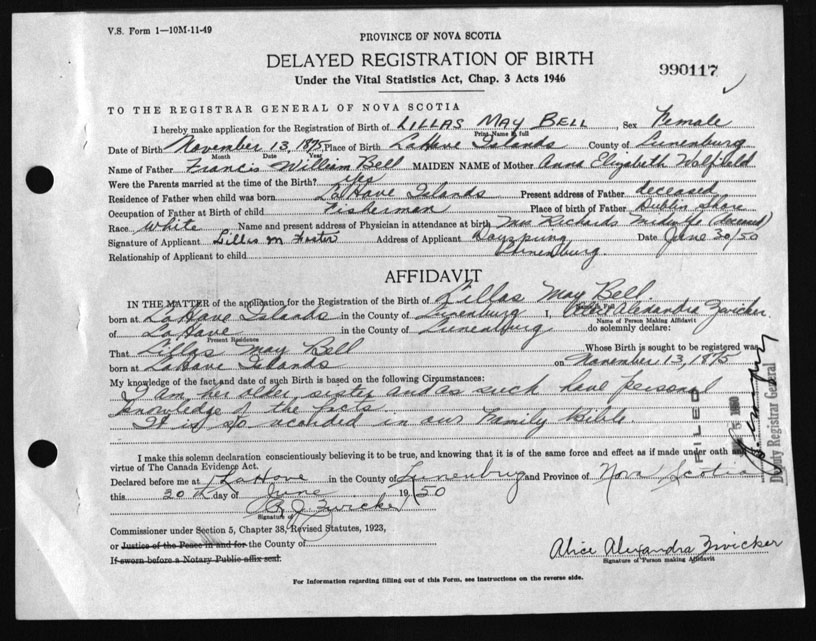 V.S. Form 1—10M-11-49
PROVINCE OF NOVA SCOTIA
DELAYED REGISTRATION OF BIRTH
Under the Vital Statistics Act, Chap. 3 Acts 1946
990117
TO THE REGISTRAR GENERAL OF NOVA SCOTIA
I hereby make application for the Registration of Birth of LILLAS MAY BELL, Sex Female
Print Name in full
Date of Birth November 13, 1875 Place of Birth LaHave Islands County of Lunenburg
Month Date Year
Name of Father Francis William Bell MAIDEN NAME of Mother Anna Elizabeth
Were the Parents married at the time of the Birth? Yes
Residence of Father when child was born LaHave Islands Present address of Father deceased
Occupation of Father at Birth of child Fisherman Place of birth of Father Dublin Shore
Race White Name and present address of Physician in attendance at birth Mrs Richards Midwife (deceased)
Signature of Applicant Lillas M Foster Address of Applicant Dayspring Date June 30/50
Relationship of Applicant to child Lunenburg.
AFFIDAVIT
IN THE MATTER of the application for the Registration of the Birth of Lillas May Bell
born at LaHave Islands in the County of Lunenburg I, Alexandra Zwicker
Name of Person Making Affidavit
of LaHave in the County of Lunenburg do solemnly declare:
Present Residence
That Lillas May Bell Whose Birth is sought to be registered was
born at LaHave Islands on November 13, 1875
My knowledge of the fact and date of such Birth is based on the following Circumstances:
I am her older sister and as such have personal
knowledge of the facts.
It is so recorded in our Family Bible.
FILED
1950
Deputy Registrar General
I make this solemn declaration conscientiously believing it to be true, and knowing that it is of the same force and effect as if made under oath by
virtue of The Canada Evidence Act.
Declared before me at LaHave in the County of Lunenburg and Province of Nova Scotia
this 30th day of June 1950
R J Zwicker
Signature of
Commissioner under Section 5, Chapter 38, Revised Statutes, 1923,
or Justice of the Peace in and for the County of
If sworn before a Notary Public affix seal.
Alice Alexandra Zwicker
Signature of Person making Affidavit
For Information regarding filling out of this Form, see instructions on the reverse side.